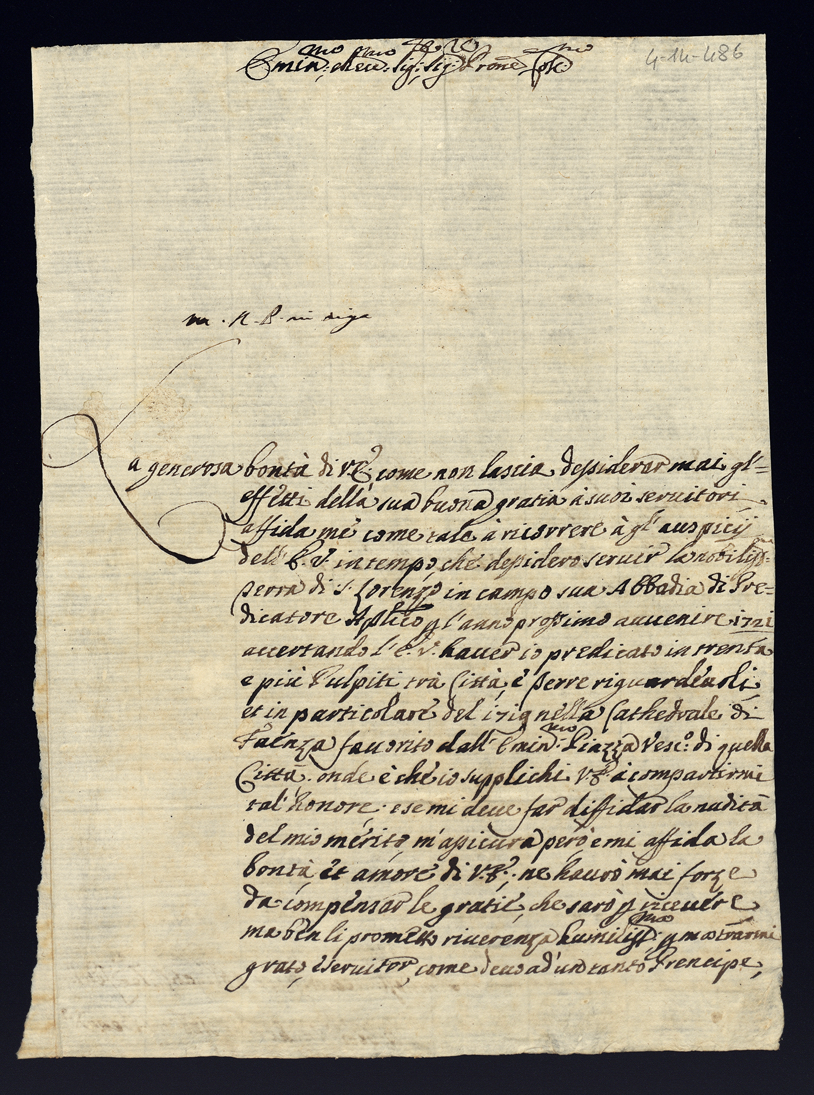 Emin:mo e Reu:mo Sig:re Sig:re Prone Col:mo
4-14-486
La generosa bontà di V.E. come non lascia dessiderar mai gl'=
effetti della sua buona gratia à suoi servitori
affida me come tale à ricorrere à gl'auspicij
dell'E.V. in tempo, che dessidero servir la nobiliss:ma
Terra di S. Lorenzo in campo sua Abbadia di Pre=
dicatore Aplico p l'anno prossimo auuenire 1721
accertando l'E.V. hauer io predicato in trenta
e più Pulpiti trà Città, è Terre riguardeuoli
et in particolare del 1719 nella Cathedrale di
Faenza fauorito dall'Emin:mo Piazza Vesc.o di quella
Città. onde è che io supplichi V.E. à compartirmi
tal'honore. e se mi deue far diffidar la nudità
del mio merito, m'assicura però, e mi affida la
bontà et amore di V.E., ne haurò mai forze
da compensar le gratie, che sarò p riceuere
ma ben li prometto riuerenza humiliss:ma p mostrarmi
grato, è seruitor, come deuo ad'un tanto Prencipe,